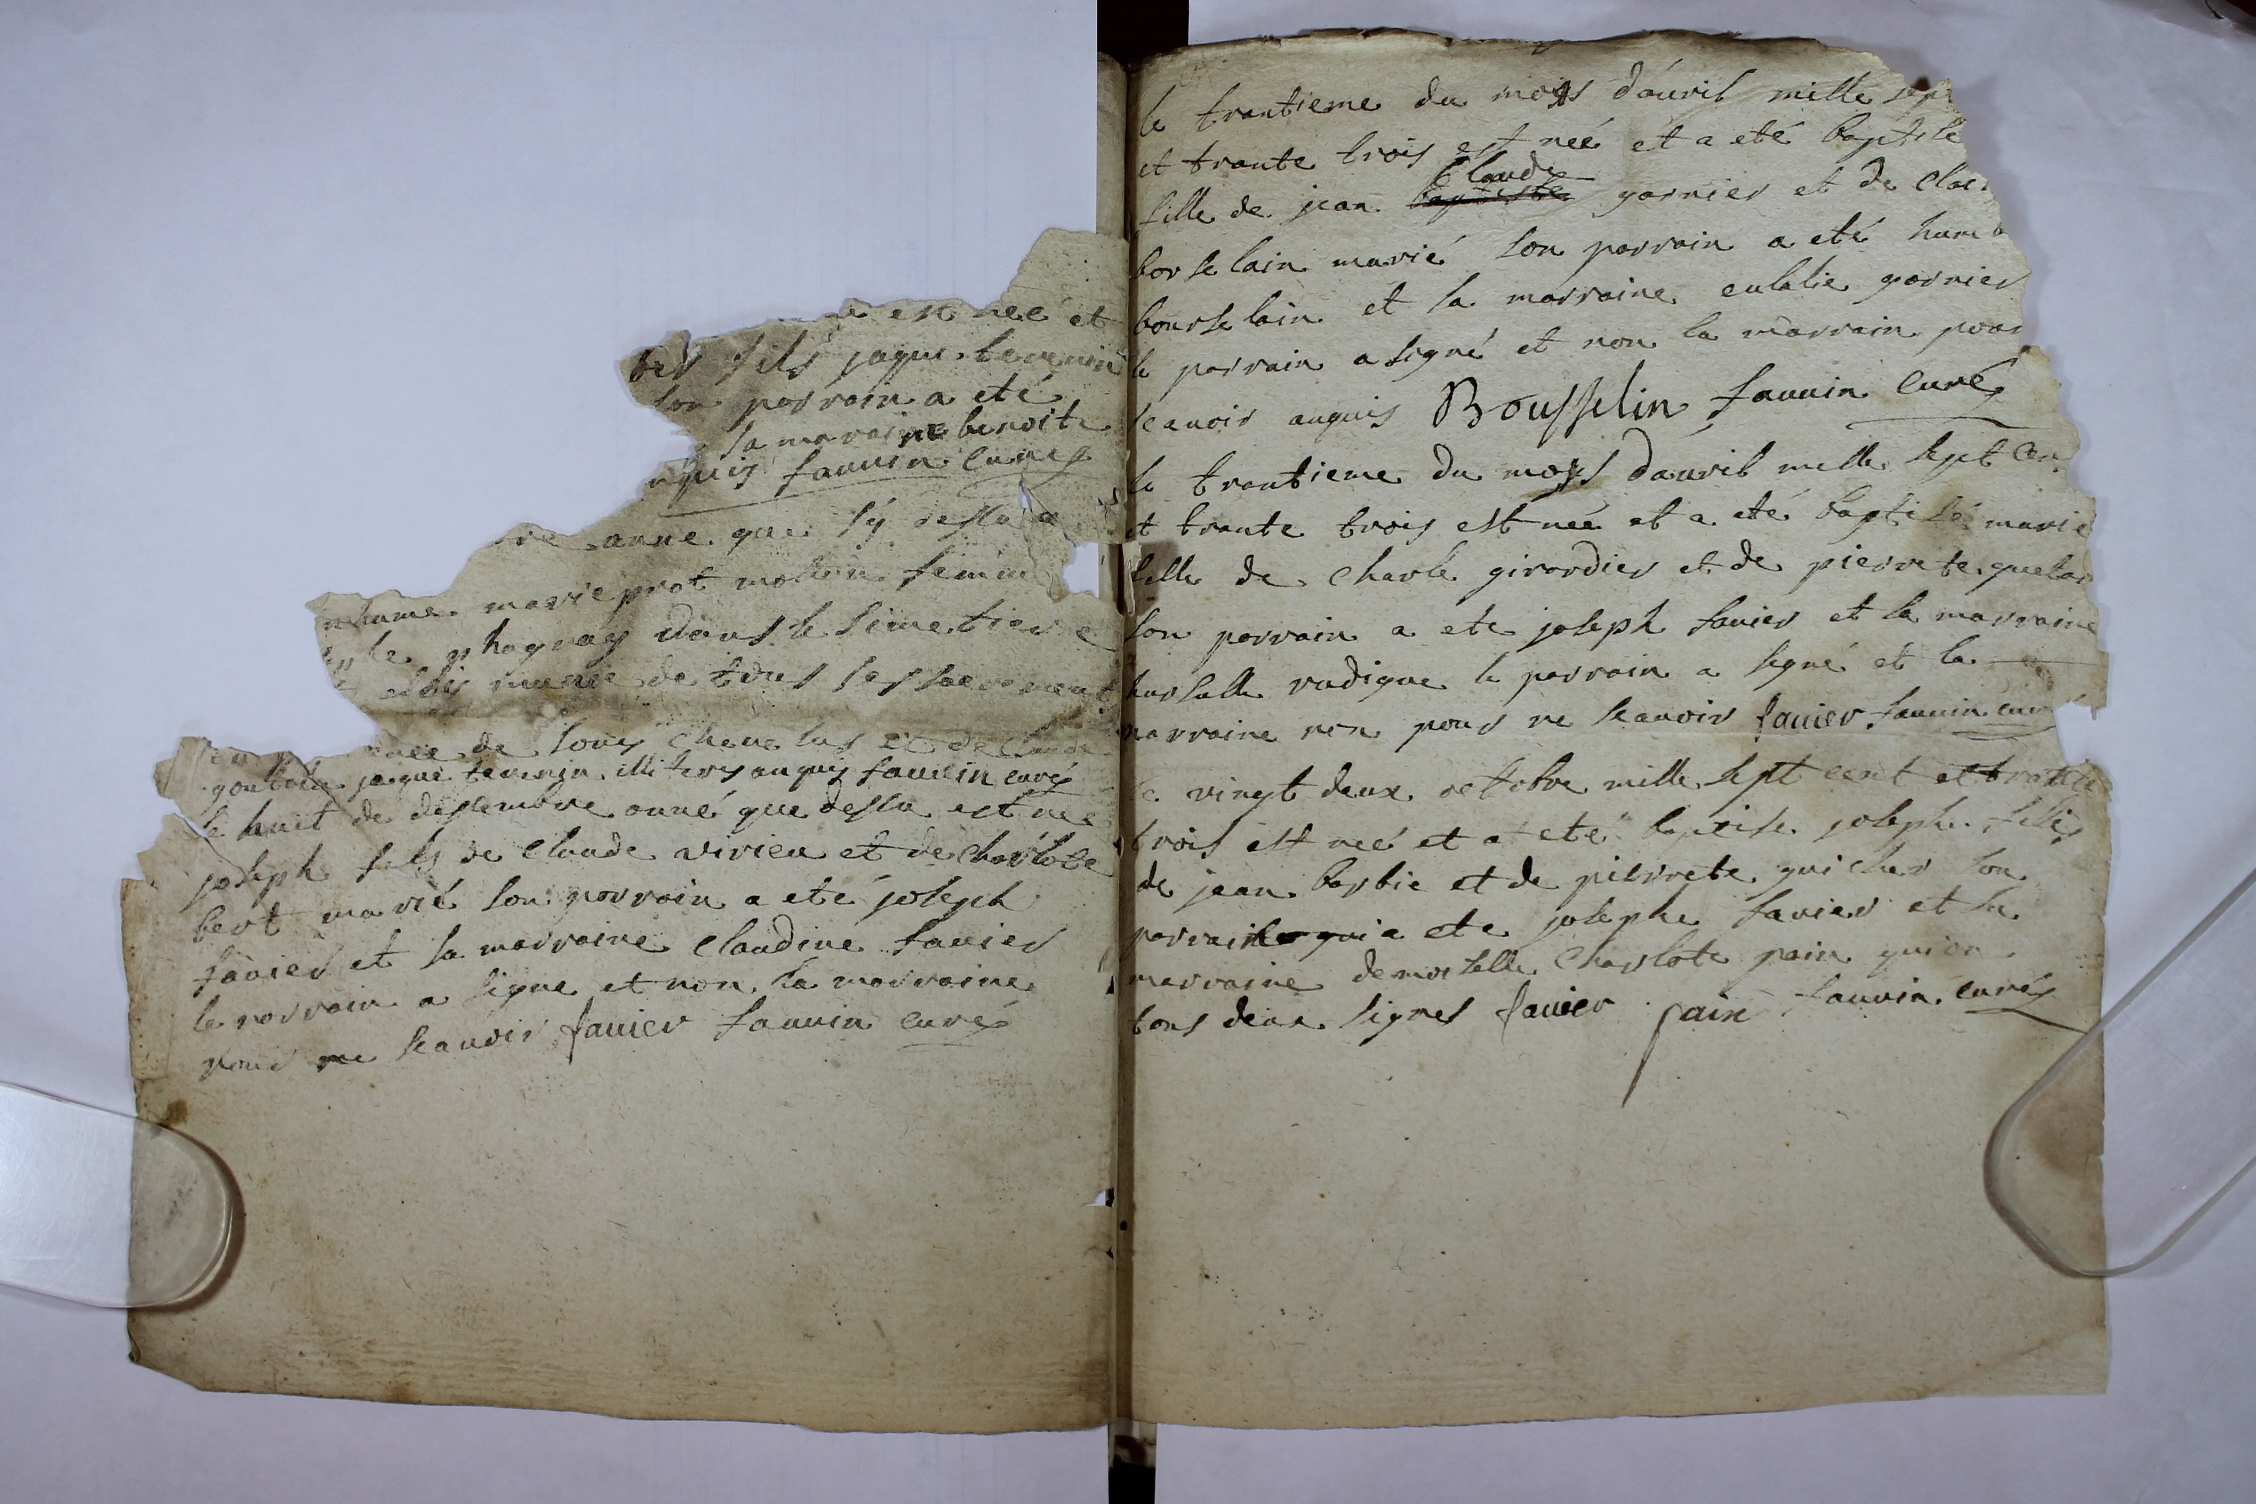 est neé et
ber fils jaque
son parrain a eté
sa maraine benoite
nquis fauuin curés
anne que sy dessu
marie prot femme
dans le simetiere
munie de tous ses sacrement
de louis chevelus et de
jaque illiterés anquis fauuin curés
le huit de dessembre anné que dessu est né
joseph fils de claude virieu et de charlote
bert marié son parrain a eté joseph
favier et sa marraine claudine favier
le parrain a signe et non la marraine
pour ne scauoir favier fauuin curés
le trantieme du moys dáuril mille sept
et trante trois est neé et a eté baptisé
fille de jean claude garnier et de clau
borselain marié son parrain a eté humb
bourselain et sa marraine eulalie garnier
le parrain a signé et non la marrain pour
scauoir anquis Bousselin fauuin curés
le trantieme du moys dáuril mille sept cen
et trante trois est neé et a eté baptisé marie
fille de charle girardier et de pierrete
son parrain a ete joseph favier et la marraine
rudigue le parrain a signé et la
marraine non pour ne scauoir favier fauuin curé
le vingt deux octobre mille sept cent et trante
trois est neé et a eté baptise joseph fils
de jean barbie et de pierrete guicher son
parrain a ete josephe favier et sa
marraine demoiselle charlote pain qui on
tous deux signes favier pain fauuin curés